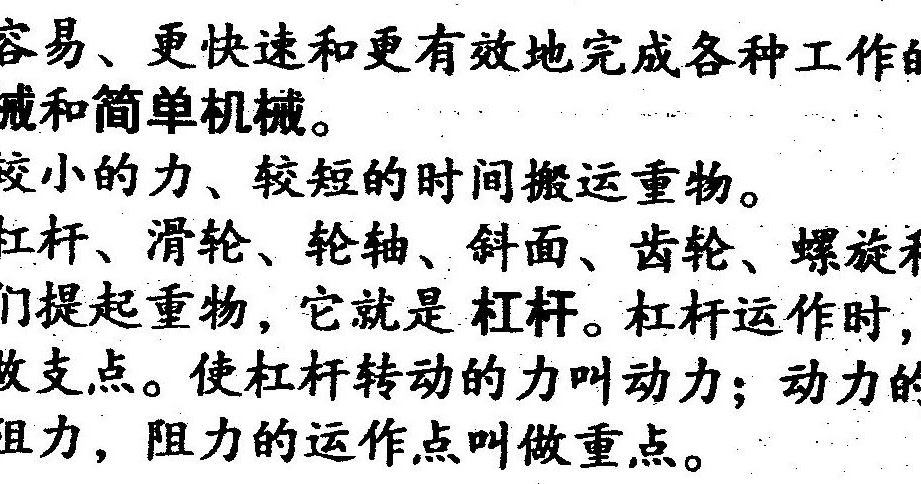 容易、更快速和更有效地完成各种工作的
械和简单机械。
较小的力、较短的时间搬运重物。
杠杆、滑轮、轮轴、斜面、齿轮、螺旋和
们提起重物，它就是杠杆。杠杆运作时，
做支点。使杠杆转动的力叫动力；动力的
阻力，阻力的运作点叫做重点。